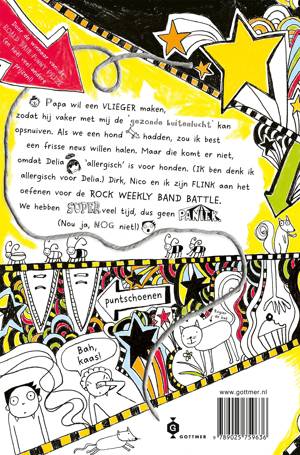 Door de winnaar van de
ROALD DAHL FUNNY PRIZE
(en heel veel andere
prijzen)
Papa wil een VLIEGER maken,
zodat hij vaker met mij de 'gezonde buitenlucht' kan
opsnuiven. Als we een hond hadden, zou ik best
een frisse neus willen halen. Maar die komt er niet,
omdat Delia 'allergisch' is voor honden. (IK ben denk ik
allergisch voor Delia.) Dirk, Nico en ik zijn FLINK aan het
oefenen voor de ROCK WEEKLY BAND BATTLE.
We hebben SUPERveel tijd, dus geen PANIEK.
(Nou ja, NOG niet!)
puntschoenen
Bah,
kaas!
www.gottmer.nl
GOTTMER
9 789025 759636